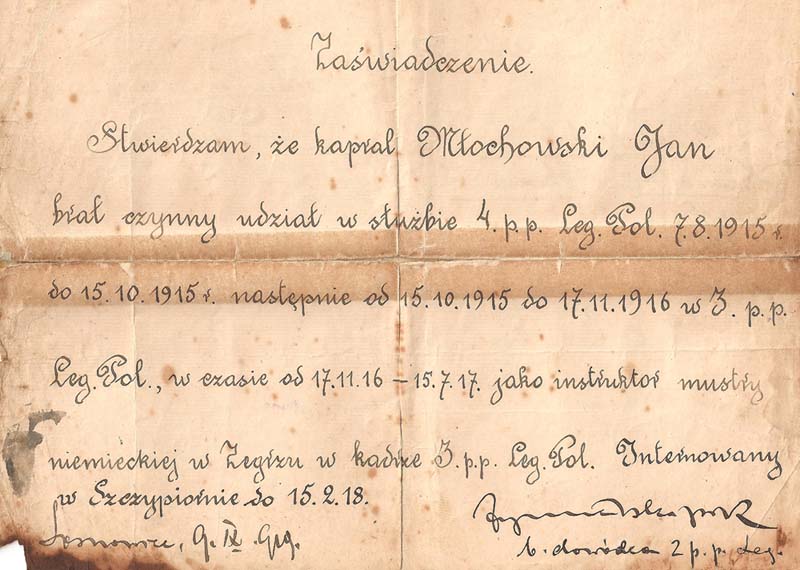 Zaświadczenie.
Stwierdzam, że kapral Młochowski Jan
brał czynny udział w służbie 4. p. p. Leg. Pol. 7.8.1915 r.
do 15.10.1915 r. następnie od 15.10.1915 do 17.11.1916 w 3. p. p.
Leg. Pol., w czasie od 17.11.16 – 15.7.17. jako instruktor mustry
niemieckiej w Zegrzu w kadrze 3. p. p. Leg. Pol. Internowany
w Szczypiornie do 15.2.18.
Sosnowice, 9. IX.
b. dowódca 2 p. p. Leg.